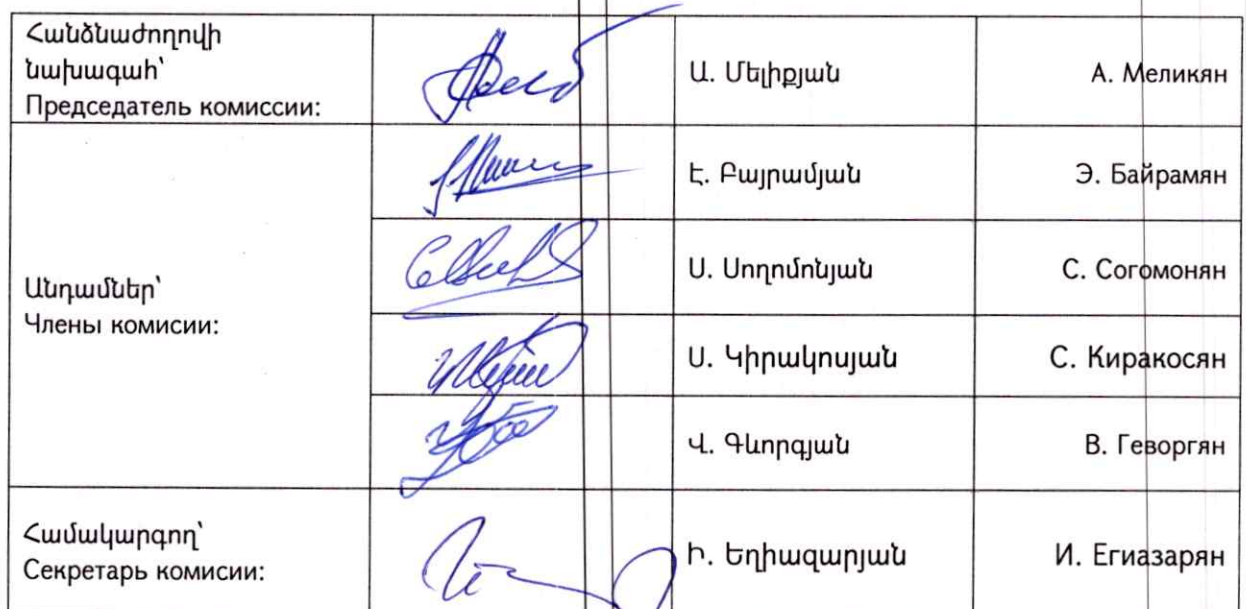 Հանձնաժողովի
նախագահ՝
Председатель комиссии:
Ա. Մելիքյան
А. Меликян
Անդամներ՝
Члены комисии:
Է. Բայրամյան
Э. Байрамян
Ս. Սողոմոնյան
С. Согомонян
Ս. Կիրակոսյան
С. Киракосян
Վ. Գևորգյան
В. Геворгян
Համակարգող՝
Секретарь комисии:
Ի. Եղիազարյան
И. Егиазарян